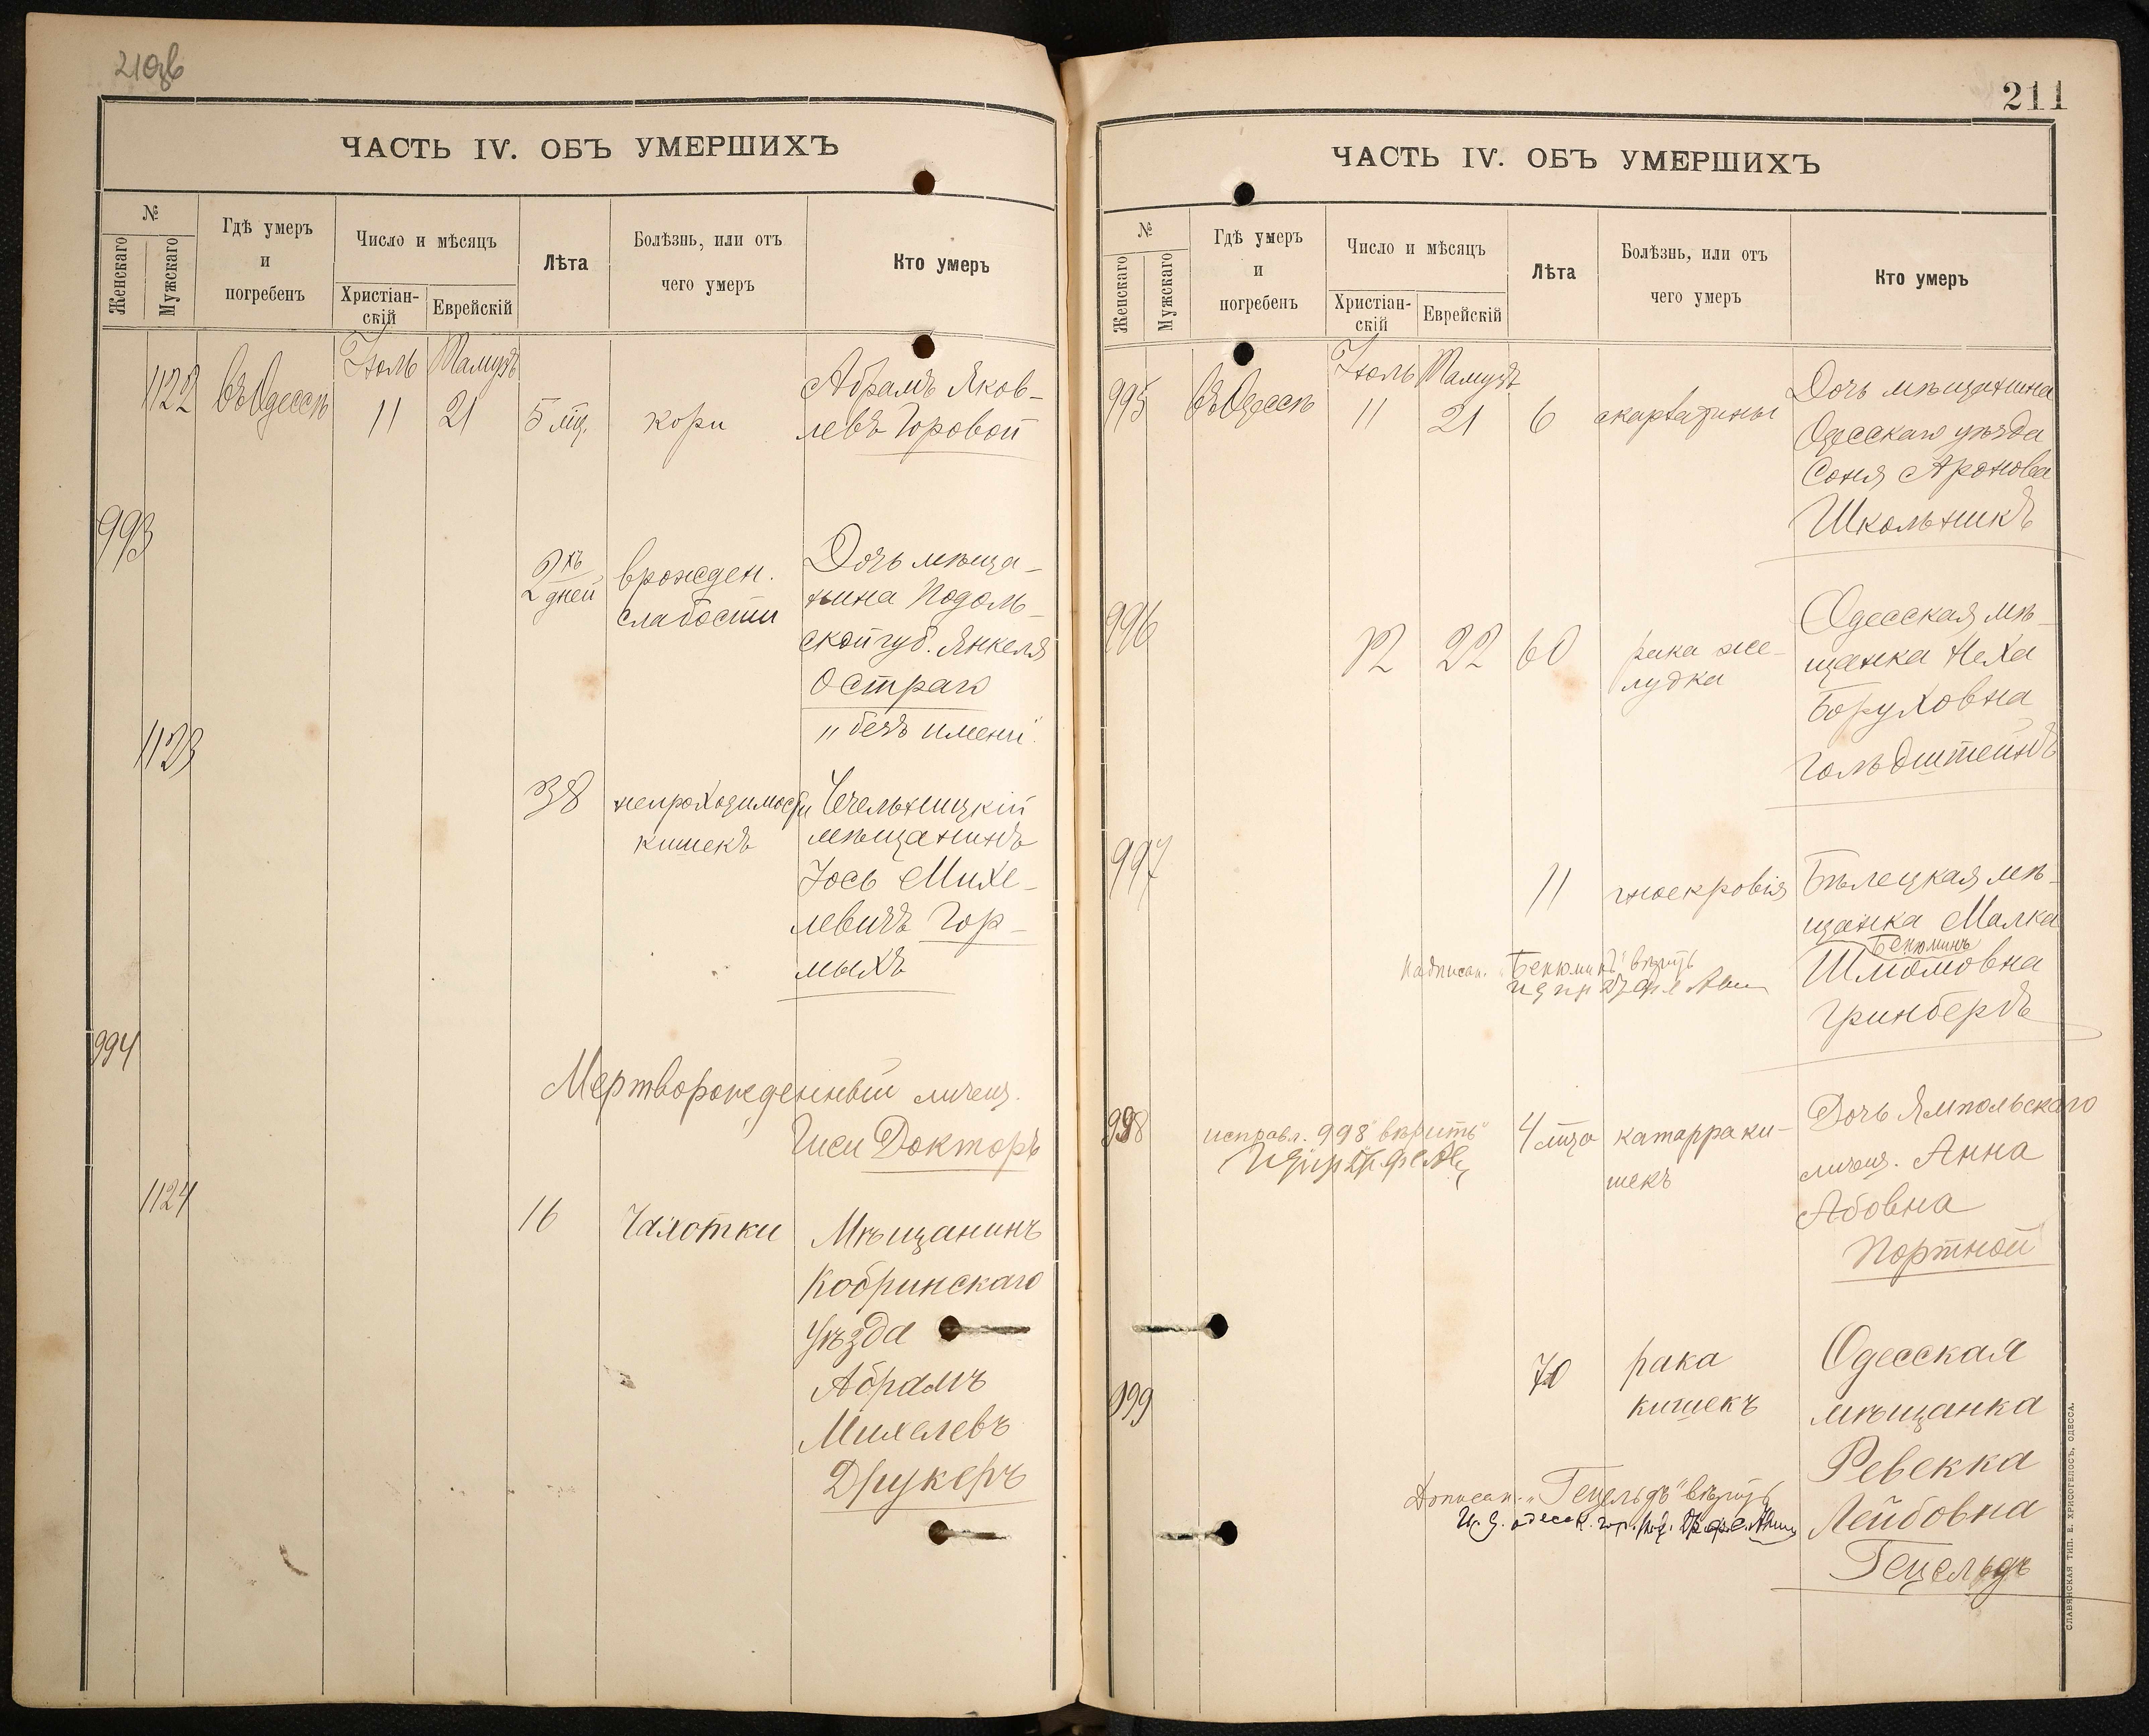 210об
ЧАСТЬ IV. ОБЪ УМЕРШИХЪ
№
Женскаго
Мужскаго
Гдѣ умеръ
и
погребенъ
Число и мѣсяцъ
Христіан-
скій
Еврейскій
Лѣта
Болѣзнь, или отъ
чего умеръ
Кто умеръ
Іюль Тамузъ
1122 въ Одессѣ 11 21 5 мц. кори Абрамъ Яков-
левъ Горовой
993
2хъ дней врожден. Дочь мѣща-
слабости нина Подоль-
ской губ. Янкеля
Остраго
"безъ имени"
1123
38 непроходимости Чечельницкій
кишекъ мѣщанинъ
Іось Михе-
левичъ Гор-
мыхъ
994
Мертворожденный
Гиси Докторъ
1124
16 Чахотки Мѣщанинъ
Кобринскаго
уѣзда
Абрамъ
Михелевъ
Друкеръ
211
ЧАСТЬ IV. ОБЪ УМЕРШИХЪ
№
Женскаго
Мужскаго
Гдѣ умеръ
и
погребенъ
Число и мѣсяцъ
Христіан-
скій
Еврейскій
Лѣта
Болѣзнь, или отъ
чего умеръ
Кто умеръ
Іюль Тамузъ
995 въ Одессѣ 11 21 6 скарлатины Дочь мѣщанина
Одесскаго уѣзда
Соня Аронова
Школьникъ
996
12 22 60 рака же- Одесская мѣ-
лудка щанка Неха
Боруховна
Гольдштейнъ
997
11 гноекровія Бѣлецкая мѣ-
щанка Малка
Бенюминъ
Надписан. "Бенюминъ" вѣрить
Шлиомовна
Гринбергъ
998 исправл. "998" вѣрить 4 мца катарра ки-
шекъ
Дочь Ямпольскаго
Анна
Абовна
Портной
999
70 рака Одесская
кишекъ мѣщанка
Ревекка
Дописан. "Гецельдъ" вѣрить
Лейбовна
Гецельдъ
СЛАВЯНСКАЯ ТИП. Е. ХРИСОГЕЛОСЪ, ОДЕССА.